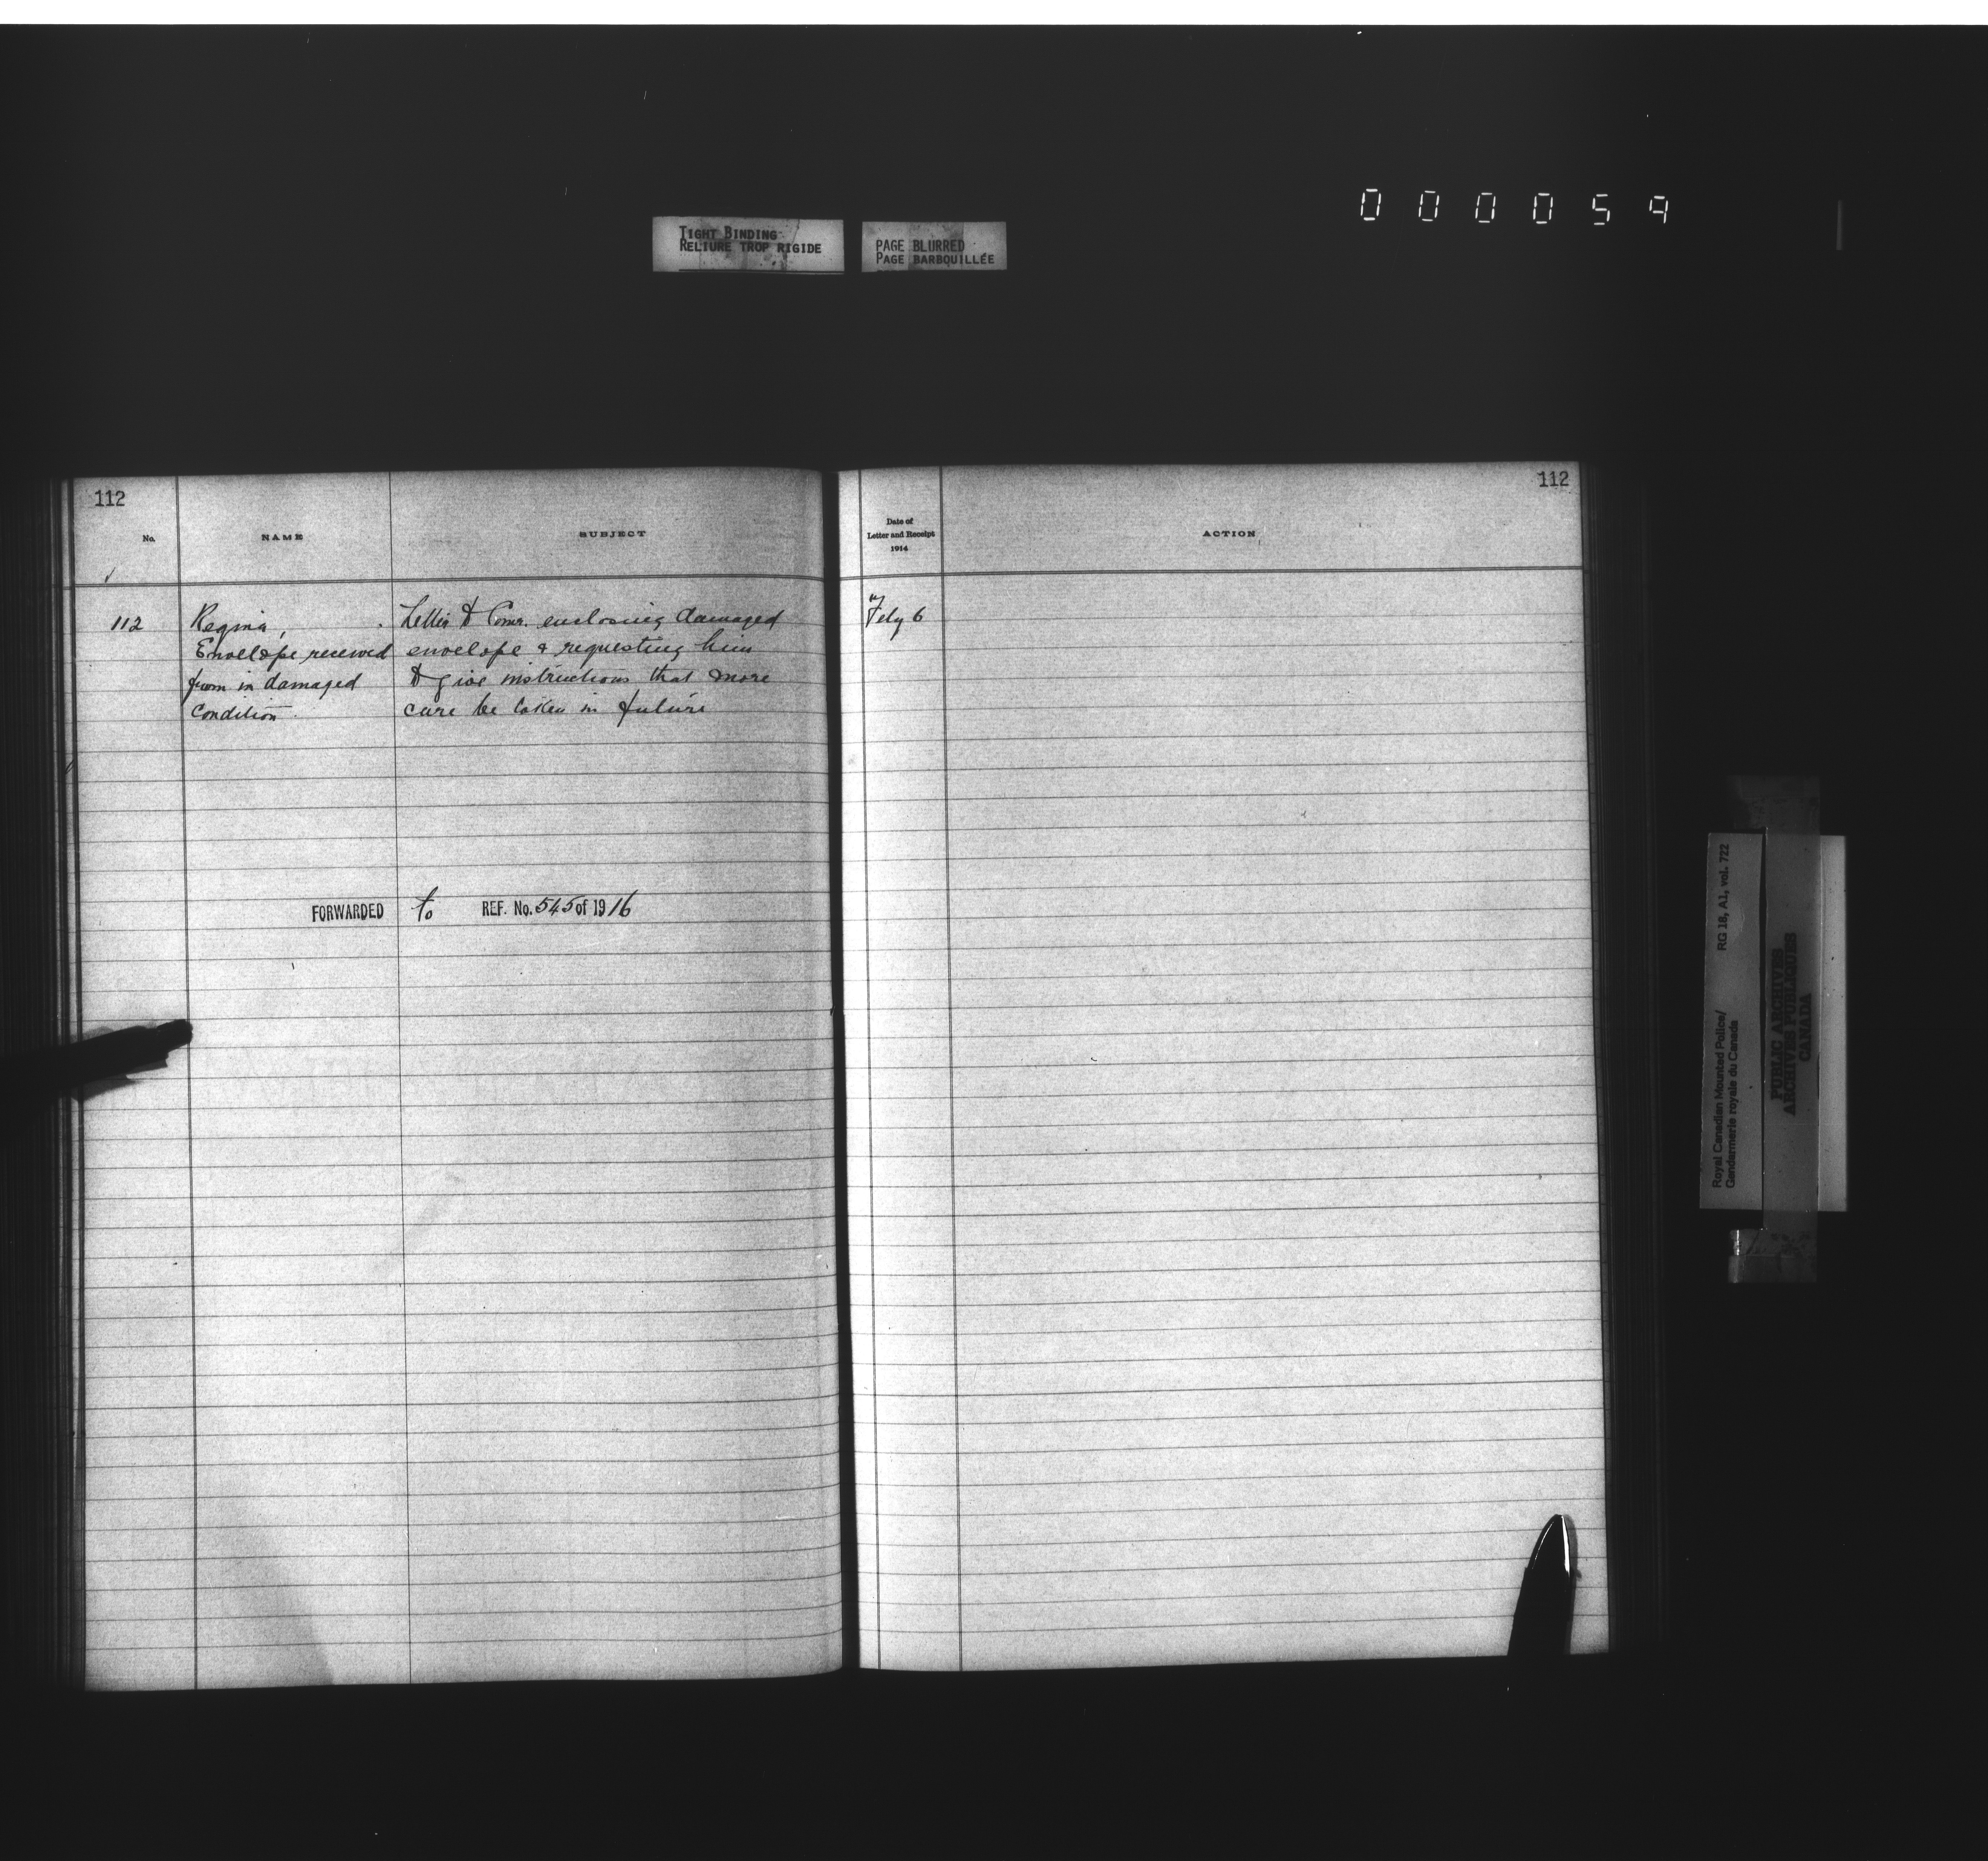 000059
TIGHT BINDING
RELIURE TROP RIGIDE
PAGE BLURRED
PAGE BARBOUILLÉE
112
No.
NAME
SUBJECT
112
Regina,
Envelope received
from in damaged
condition.
Letter to Comr. enclosing damaged
envelope & requesting him
to give instructions that more
care be taken in future
FORWARDED to REF. No. 545 of 1916
112
Date of
Letter and Receipt
1914
ACTION
Feby 6
Royal Canadian Mounted Police/
Gendarmerie royale du Canada
RG 18, A1, vol. 722
PUBLIC ARCHIVES
ARCHIVES PUBLIQUES
CANADA